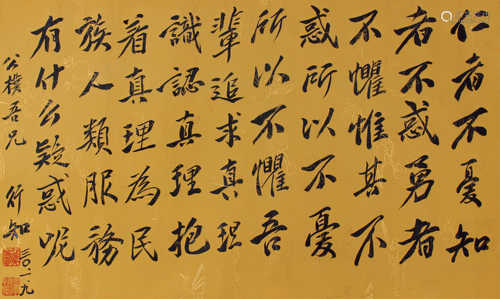 仁者不憂知
者不惑勇者
不懼惟其不
惑所以不憂
所以不懼吾
輩追求真理
識認真理抱
着真理為民
族人類服務
有什么疑惑呢
公樸吾兄 行知